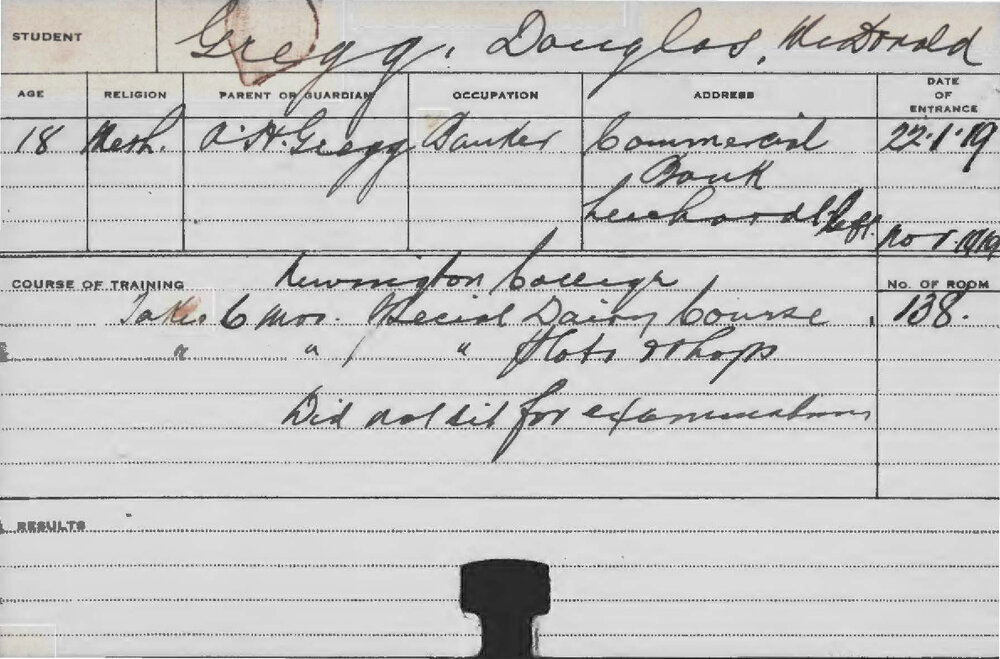 STUDENT Gregg, Douglas, McDonald
AGE RELIGION PARENT OR GUARDIAN OCCUPATION ADDRESS DATE OF ENTRANCE
18 Meth. A. H. Gregg Banker Commercial 22.1.19
Bank
Leichhardt left Nov. 1919
COURSE OF TRAINING Newington College No. OF ROOM
Takes 6 mos. Special Dairy Course 138.
" " " Plots & Shops
Did not sit for examinations
RESULTS